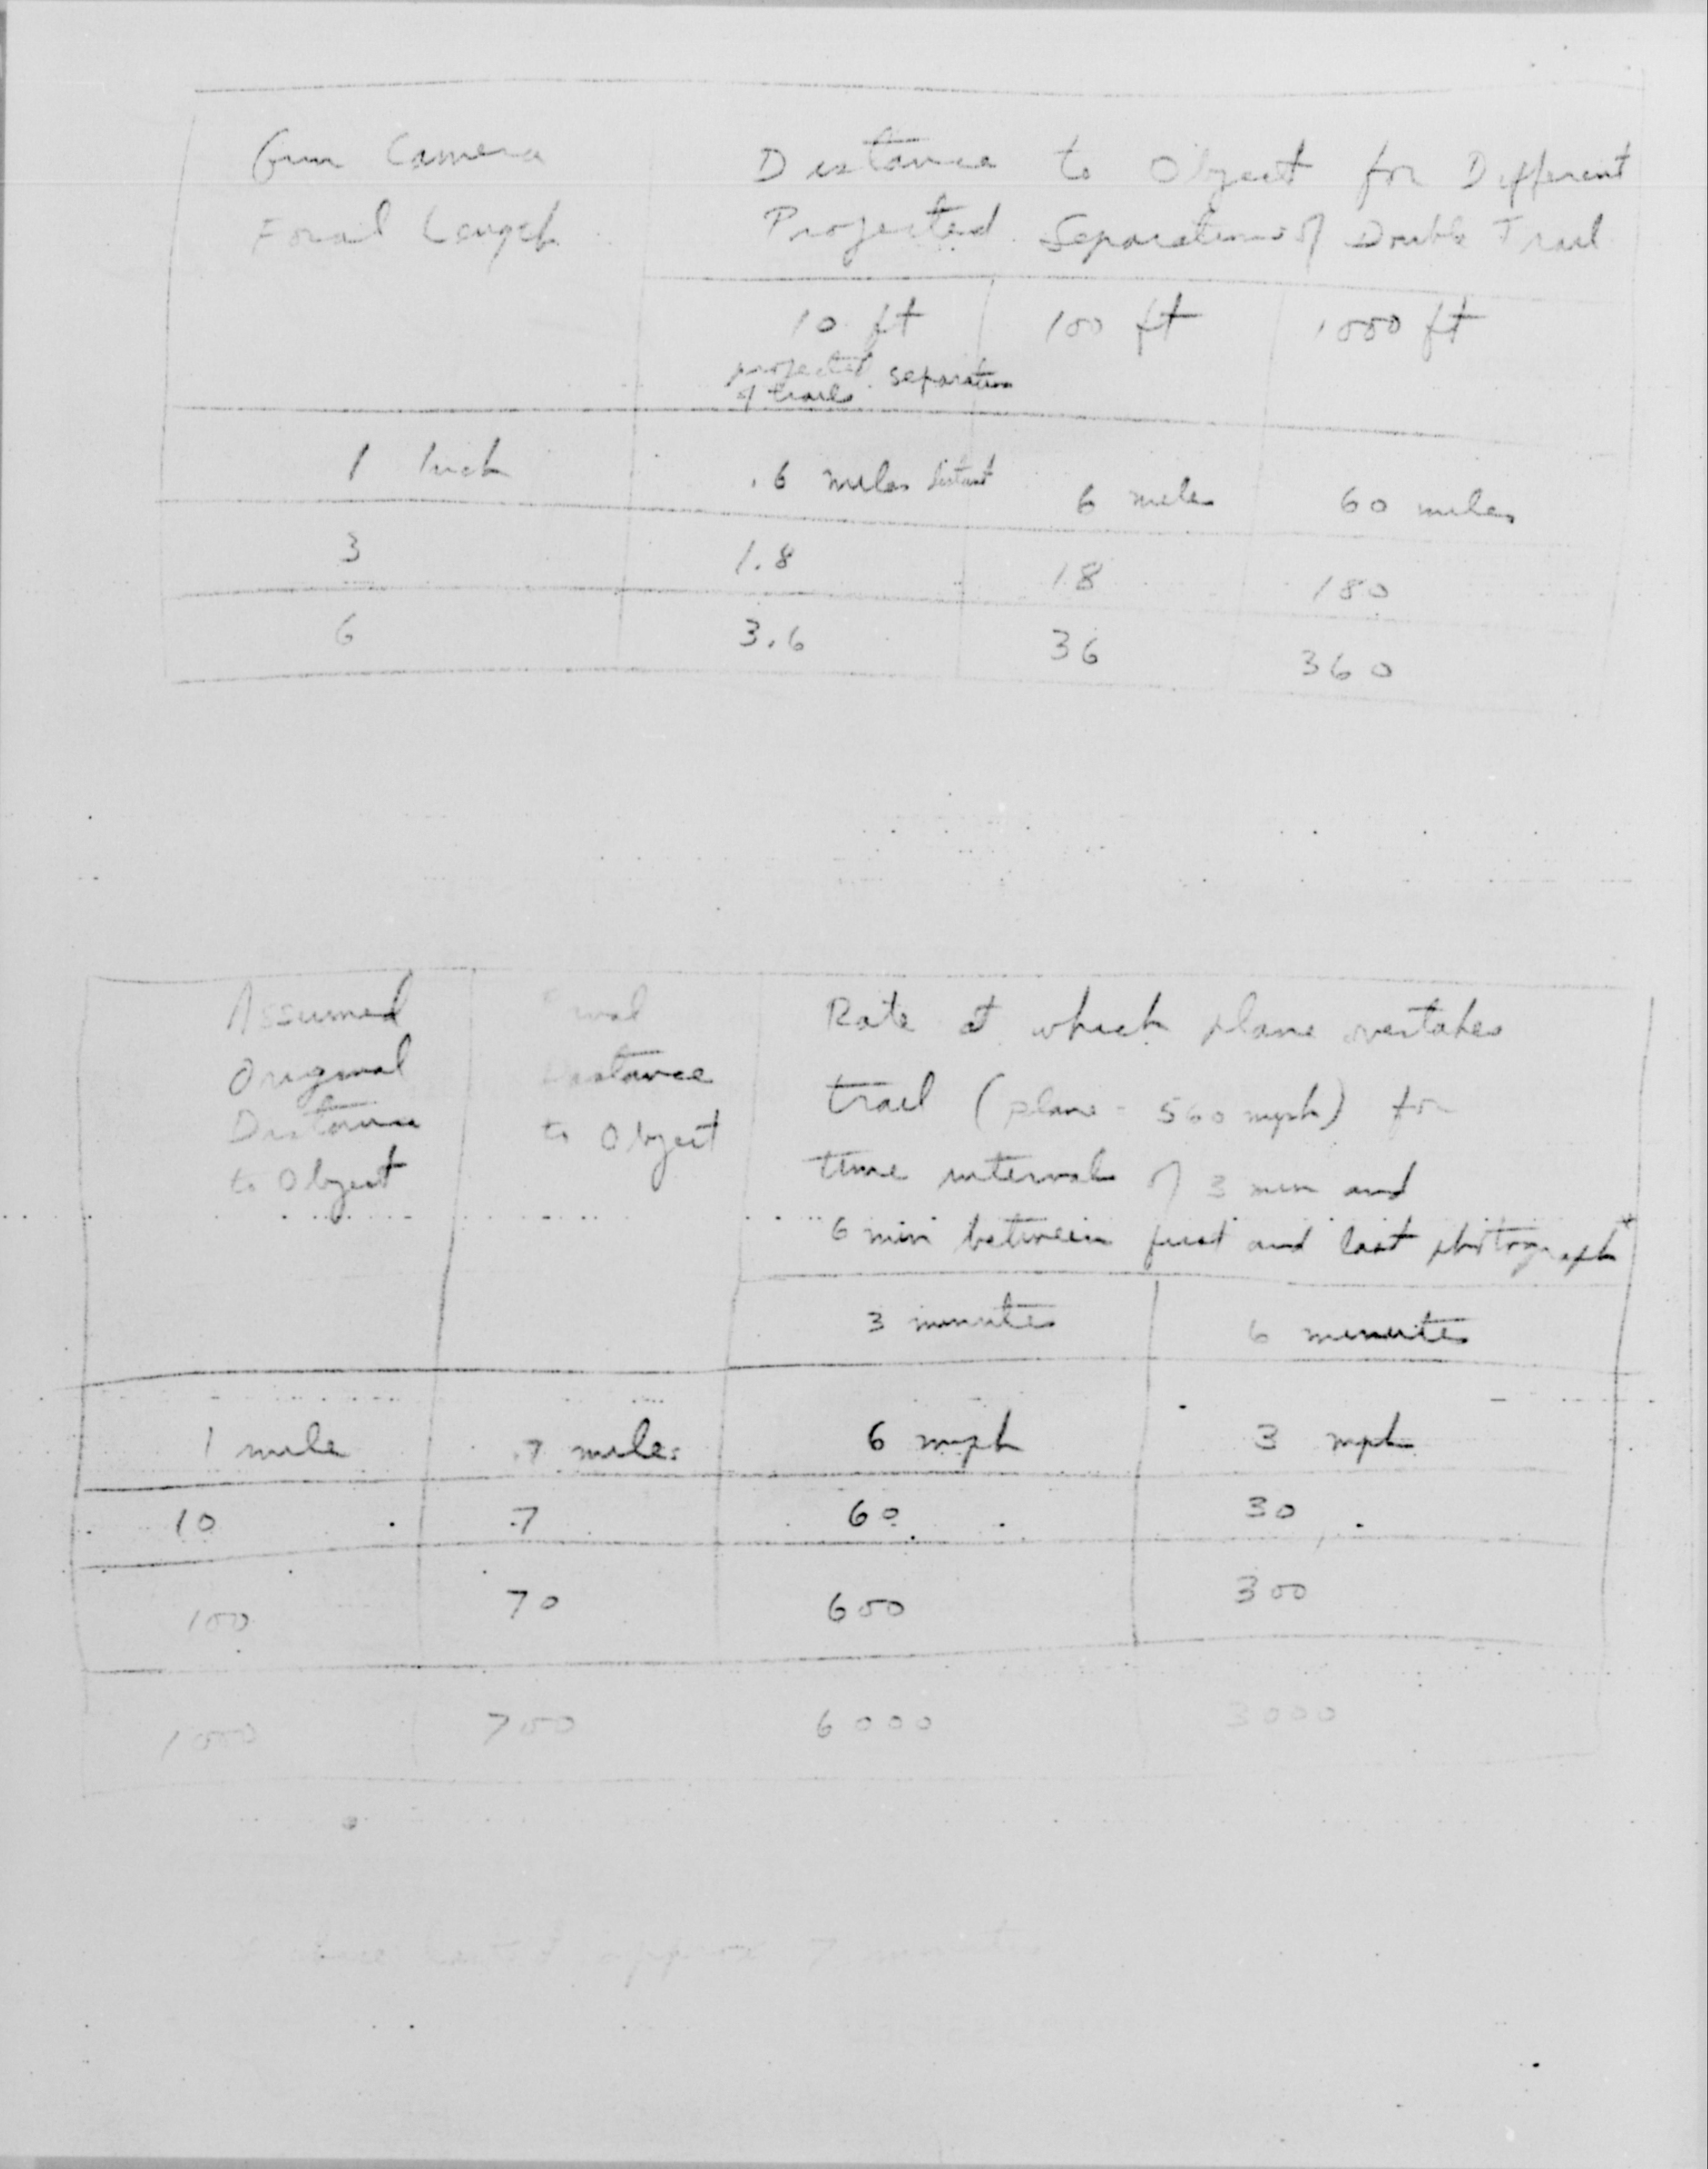 Gun Camera
Focal Length
Distance to Object for Different
Projected Separations of Double Trail
10 ft 100 ft 1000 ft
projected separation
of trails
1 Inch .6 miles distant 6 miles 60 miles
3 1.8 18 180
6 3.6 36 360
Assumed
Original
Distance
to Object
Distance
to Object
Rate at which plane overtakes
trail (plane - 560 mph) for
time intervals of 3 min and
6 min between first and last photograph*
3 minutes 6 minutes
1 mile .7 miles 6 mph 3 mph
10 7 60 30
100 70 600 300
1000 700 6000 3000
approx 7 minutes